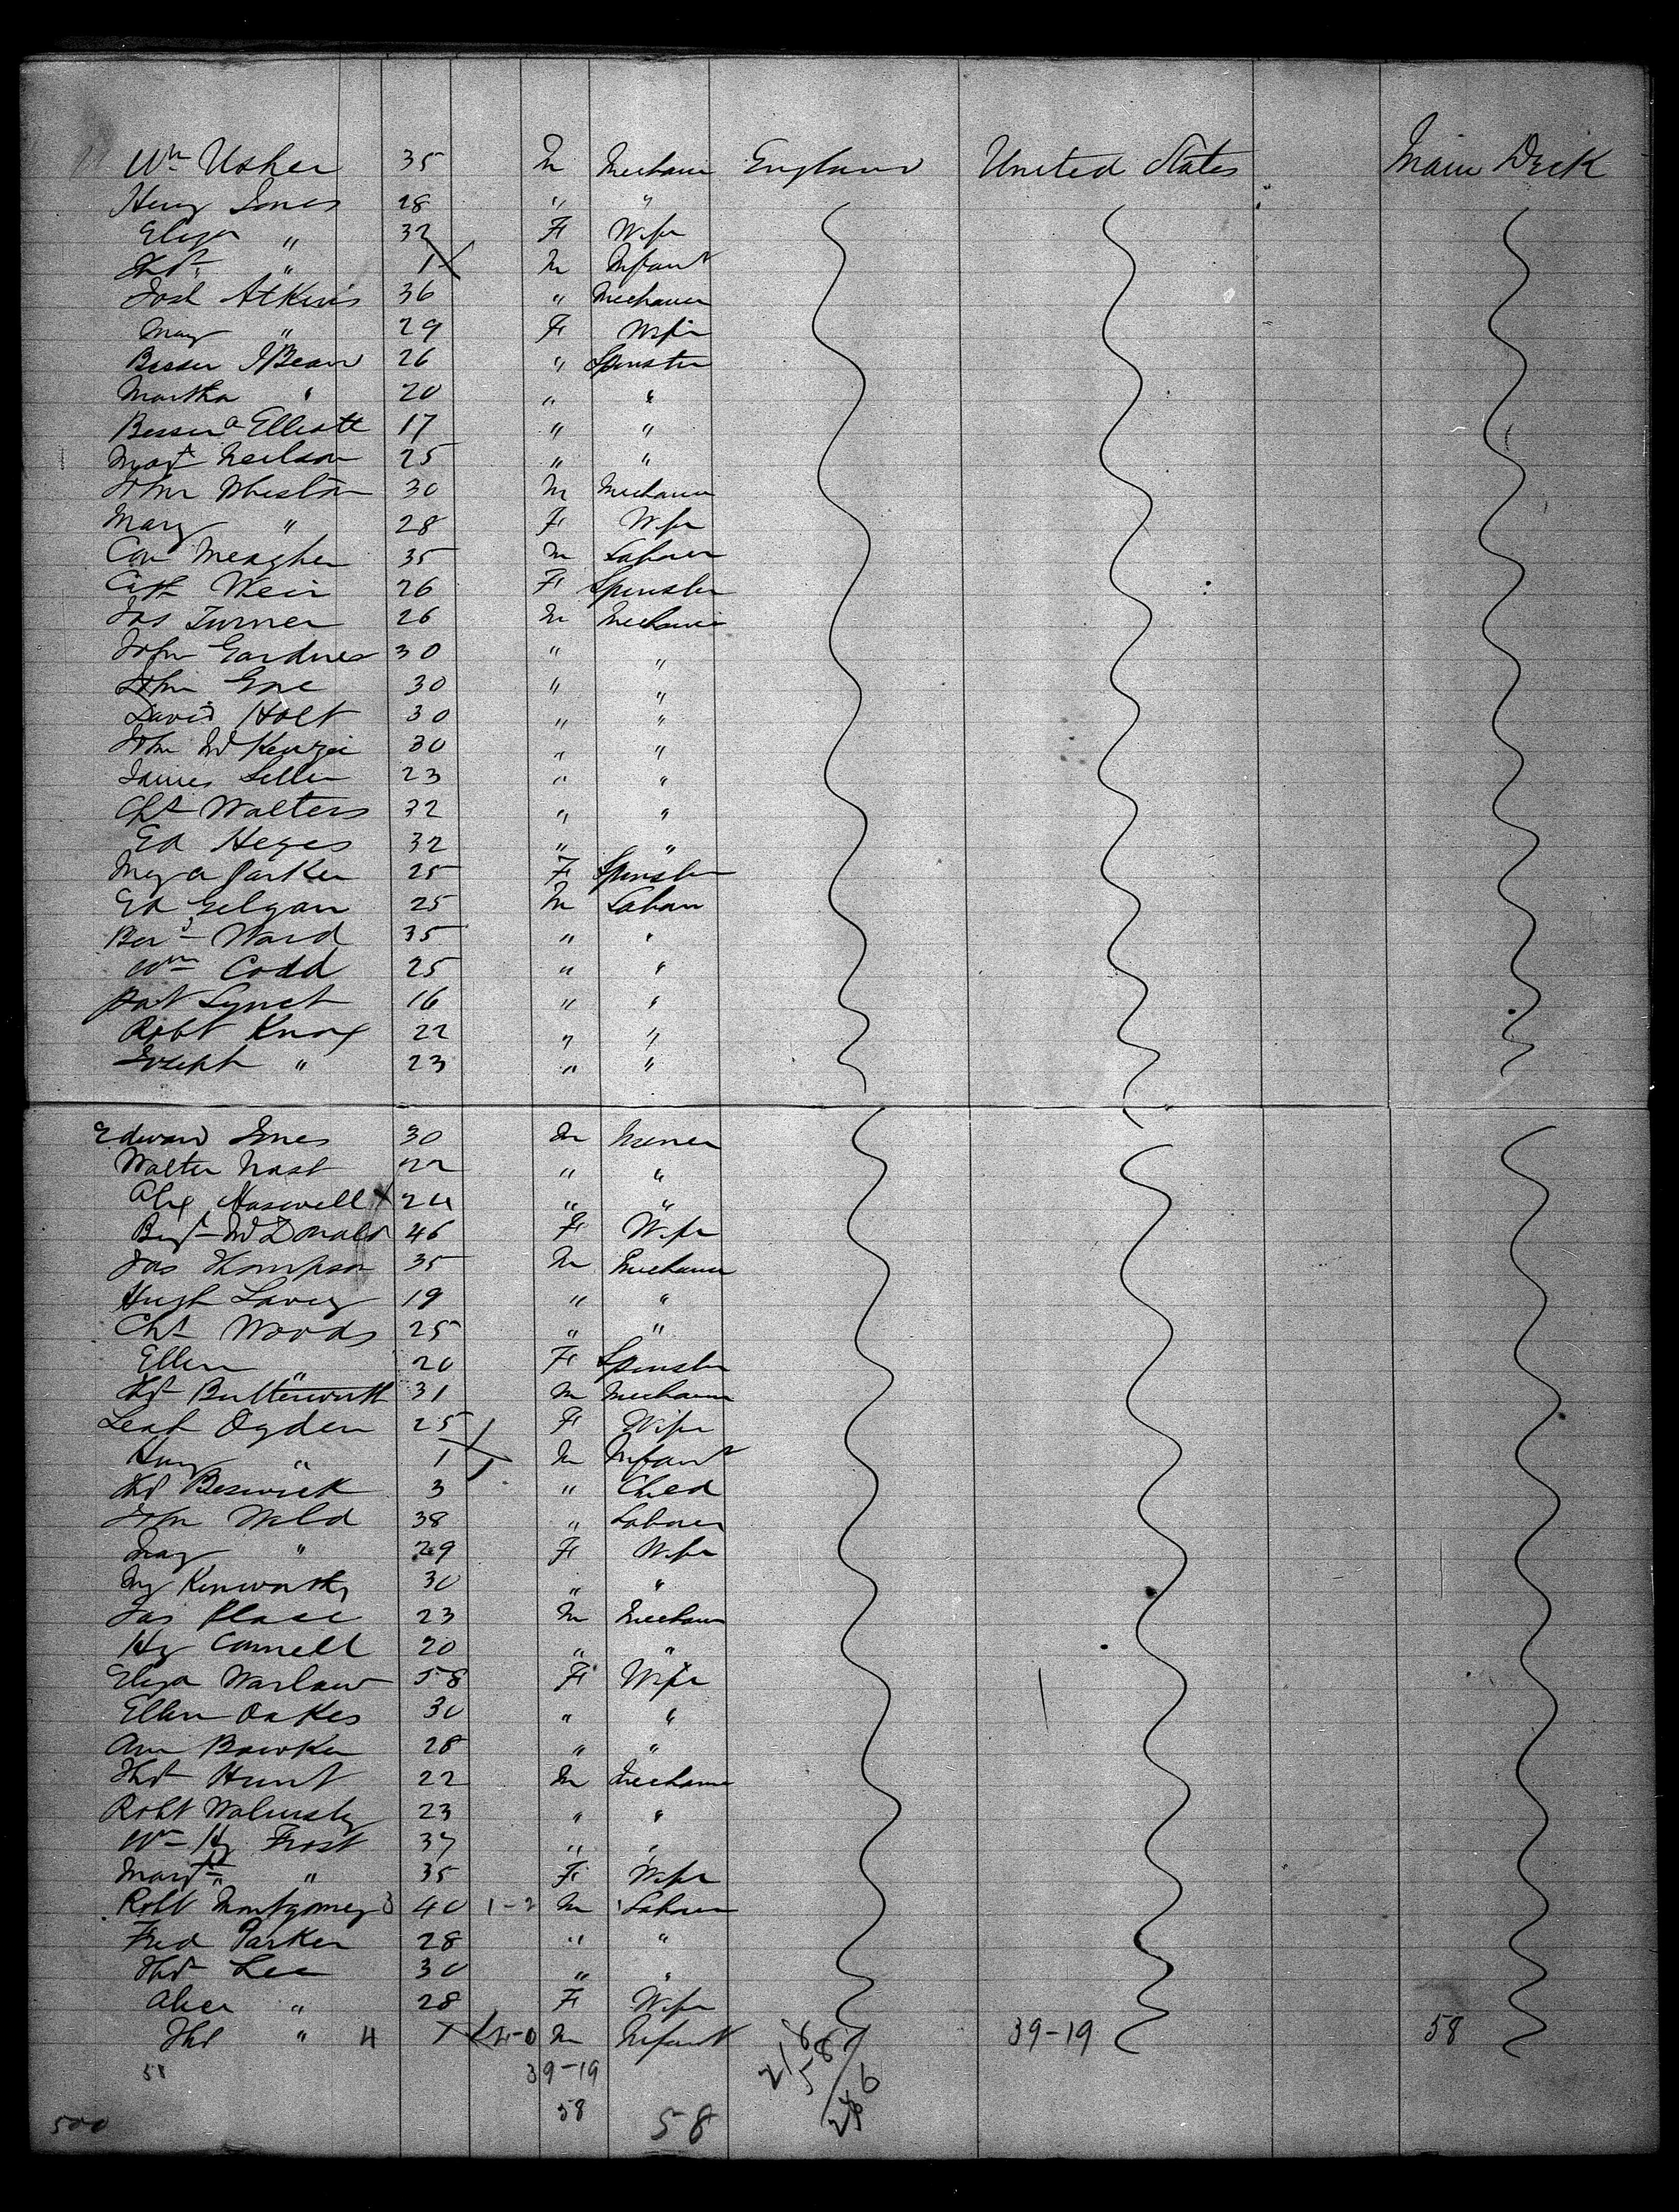 Wm Usher 35 M Mechanic England United States Main Deck
Henry Jones 28 " "
Eliza " 32 F Wife
Thos " 1 M Infant
Josh Atkins 36 " Mechanic
Mary " 29 F Wife
Bessie 26 " Spinster
Martha " 20 " "
Elliott 17 " "
Margt Neilson 25 " "
John 30 M Mechanic
Mary " 28 F Wife
Con Meagher 35 M Laborer
Cath Weir 26 F Spinster
Jas Turner 26 M Mechanic
John Gardner 30 " "
John 30 " "
David Holt 30 " "
John McKenzie 30 " "
James 23 " "
Chs Walters 32 " "
Ed Heyes 32 " "
Parker 25 F Spinster
Ed Gilgan 25 M Labour
Ward 35 " "
Wm Codd 25 " "
Pat Lynch 16 " "
Robt Knox 22 " "
Joseph " 23 " "
Edward Jones 30 M Miner
Walter Nast 22 " "
Alex Haswell 24 " "
McDonald 46 F Wife
Jas Thompson 35 M Mechanic
Hugh 19 " "
Chs Woods 25 " "
Ellen " 20 F Spinster
Thos Butterworth 31 M Mechanic
Leah Ogden 25 F Wife
Henry " 1 M Infant
Thos Beswick 3 " Child
John Wild 38 " Laborer
Mary " 29 F Wife
My Kenworthy 30 " "
Jas Place 23 M Mechanic
Hy Connell 20 " "
Eliza 58 F Wife
Ellen Oakes 30 " "
Ann Bowker 28 " "
Thos Hunt 22 M Mechanic
Robt Walmsly 23 " "
Wm Hy Frost 37 " "
Margt " 35 F Wife
Robt Montgomery 3 40 1-2 M Laborer
Fred Parker 28 " "
Thos Lee 30 " "
Alice " 28 F Wife
Thos " 4 1 4-0 M Infant 218 39-19 58
58 39-19 58
58 58
500